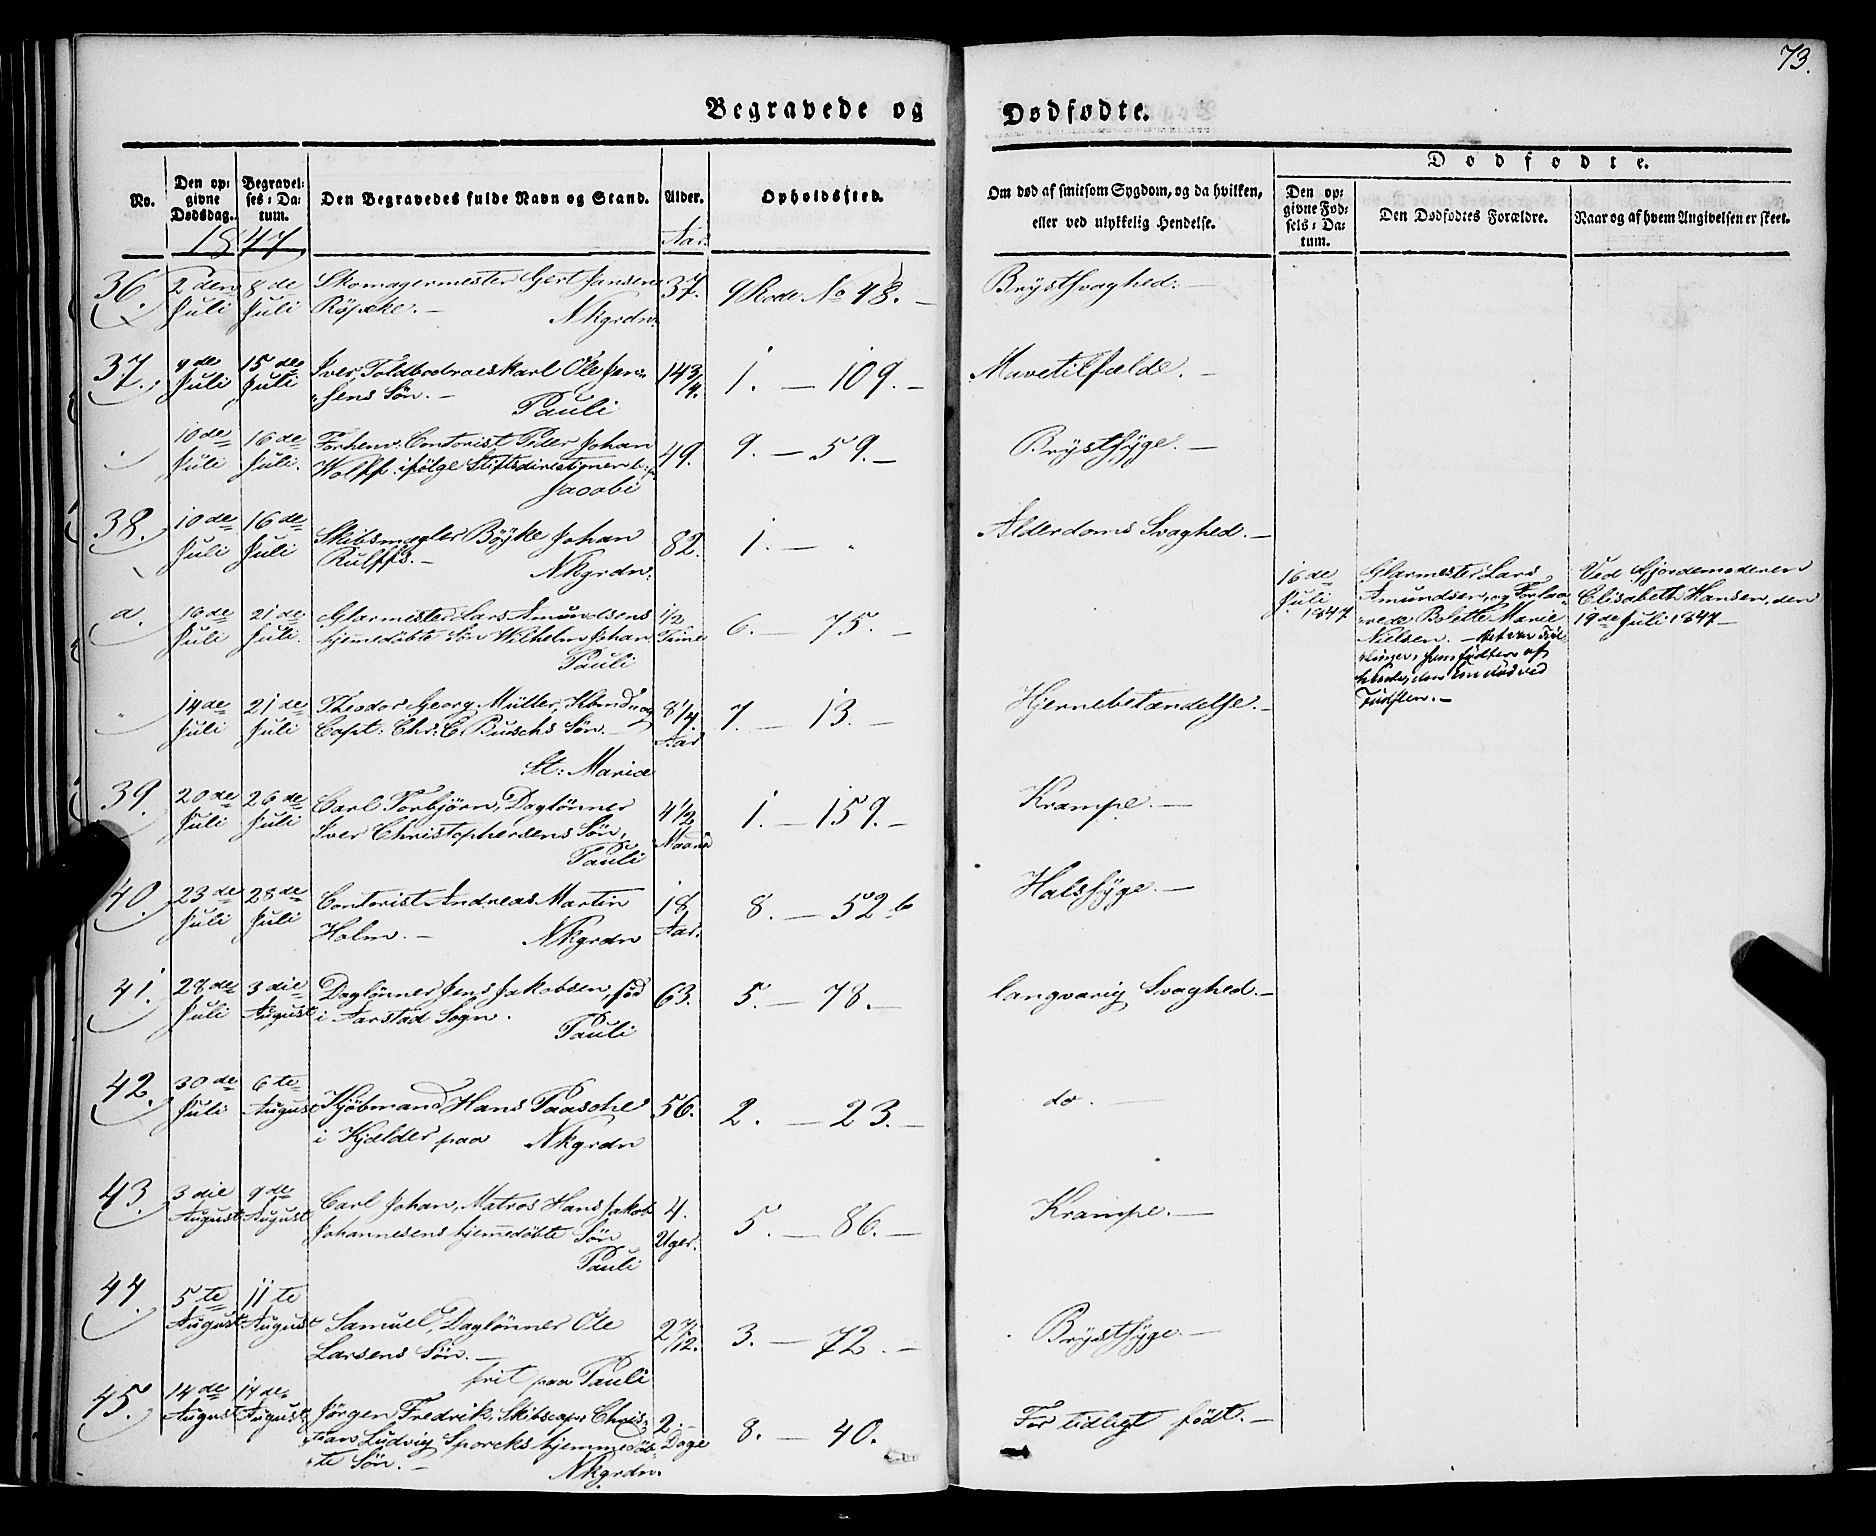 73.
Begravede og Dødfødte.
No.
Den opgivne Dødsdag.
Begravelses-Datum.
Den Begravedes fulde Navn og Stand.
Alder.
Opholdssted.
Om død af smitsom Sygdom, og da hvilken,
eller ved ulykkelig Hendelse.
Dødfødte.
Den opgivne Fødsels-Datum.
Den Dødfødtes Forældre.
Naar og af hvem Angivelsen er skeet.
1847
Aar.
36. 2den Juli 8de Juli Skomagermester Gert Jansen 37. 9 Rode No 48. — Brystsvaghed. —
Röpcke. — Nkgrdn.
37. 9de Juli 15de Juli Iver, Toldbodroeskarl Ole Jen- 14 3/4. 1. — 109. — Mavetilfælde. —
sens Søn. — Pauli
10de Juli 16de Juli. Forhenv. Contorist Peder Johan 49. 9. — 59. — Brystsyge. —
Wolff. ifølge Stiftsdirectionens
Jacobi
38. 10de Juli 16de Juli Skibsmægler Böyke Johan 82. 1. — " Alderdoms Svaghed. —
Rulffs. — Nkgrdn.
a. 16de Juli 21de Juli. Glarmester Lars Amundsens 1/2 Time 6. — 75. —
hjemmedøbte Søn Wilhelm Johan
Pauli
16de Juli 1847
Glarmester Lars
Amundsen, og Forloo-
vede Bolette Marie
Nielsen. — Det var Tvil-
linger, som fødtes af
hende, den Ene død ved
Fødslen. —
Ved Gjordemoderen
Elisabeth Hansen, den
19de Juli 1847 —
" 14de Juli 21de Juli Theodor Georg Müller, Kbmd. og 8 1/4. Aar 7. — 13. — Hjernebetændelse. —
Capt: Chr: C. Buschs Søn. —
St: Mariæ
39. 20de Juli 26de Juli Carl Torbjörn, Daglønner 4 1/2 Maaned 1. — 159. — Krampe. —
Iver Christophersens Søn,
Pauli
40. 23de Juli 28de Juli Contorist Andreas Martin 18 Aar. 8. — 52 b Halssyge. —
Holm. — Nkgrdn
41. 28de Juli 3die August Daglønner Jens Jakobsen, fød 63. 5. — 78. — langvarig Svaghed. —
i Aarstad Sogn. Pauli
42. 30de Juli 6te August Kjöbmand Hans Paasche 56. 2. — 23. — do. —
i Kjælder paa Nkgrdn
43. 3die August 9de August Carl Johan, Matros Hans Jakob 4. Uger. 5. — 86. — Krampe. —
Johannesens hjemmedøbte Søn
Pauli
44. 5te August 11te August Samuel, Daglønner Ole 2 7/12. 3. — 72. — Brystsyge. —
Larsens Søn. —
frit paa Pauli
45. 14de August 17de August Jörgen Fredrik, Skibscapt: Chris- 2. — Dage 8. — 40. For tidligt født. —
tians Ludvig Sporcks hjemmedöb-
te Søn. — Nkgrdn.